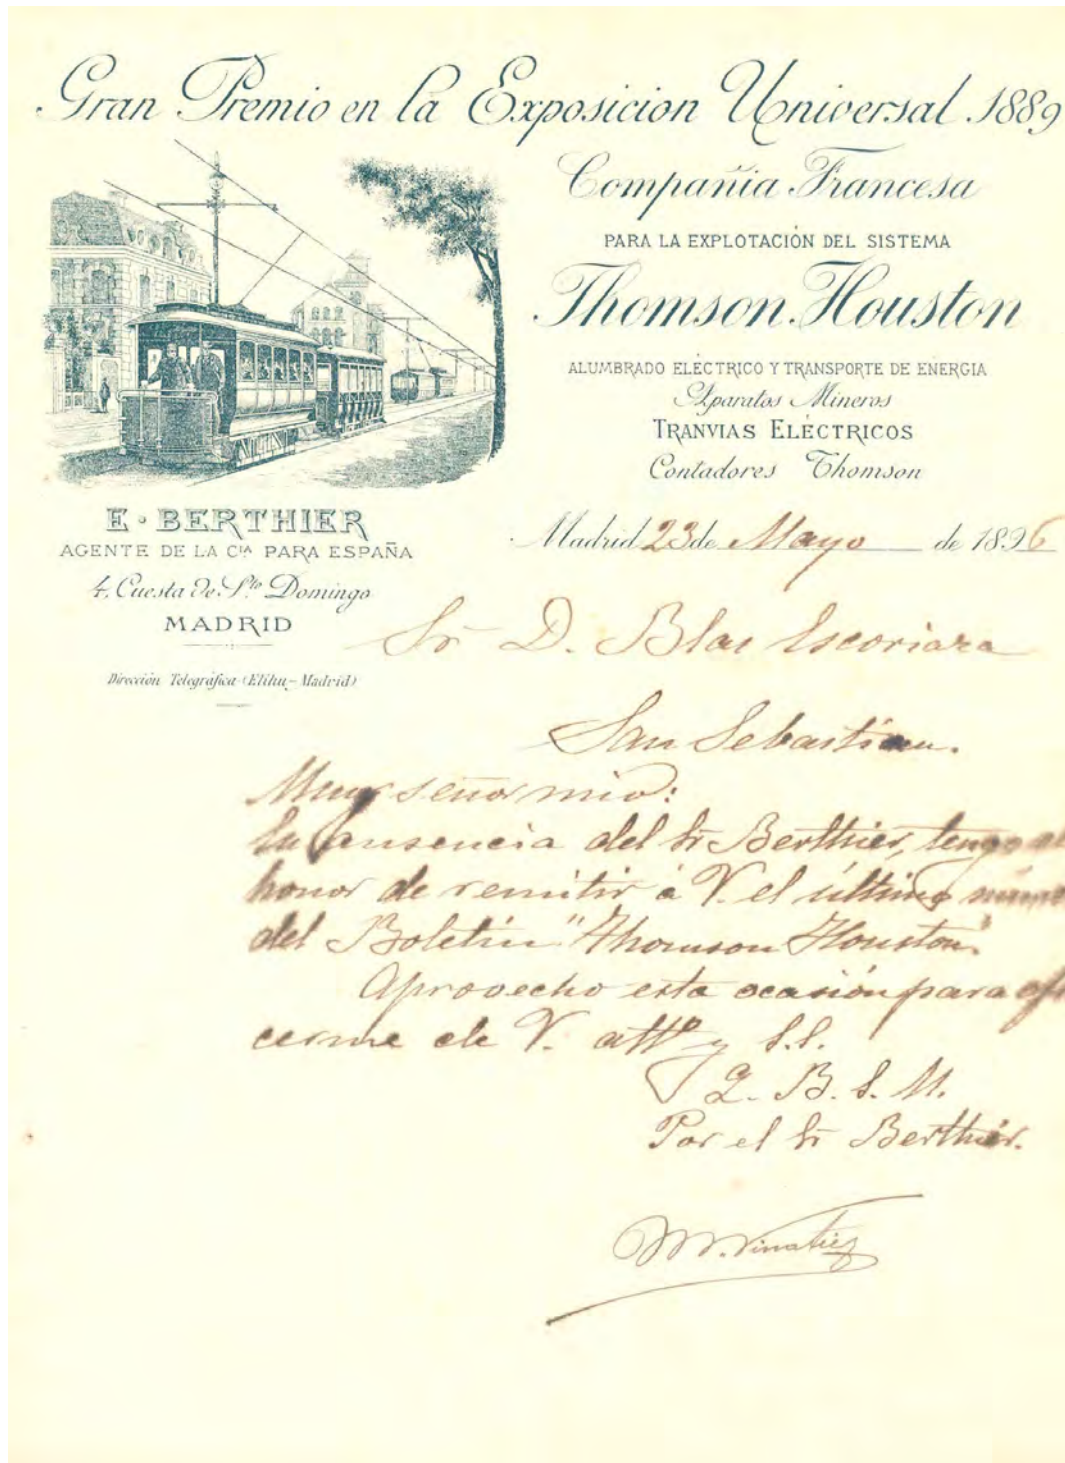 Gran Premio en la Exposicion Universal 1889
Compañia Francesa
PARA LA EXPLOTACIÓN DEL SISTEMA
Thomson Houston
ALUMBRADO ELÉCTRICO Y TRANSPORTE DE ENERGIA
Aparatos Mineros
TRANVIAS ELÉCTRICOS
Contadores Thomson
E. BERTHIER
AGENTE DE LA Cᴵᴬ PARA ESPAÑA
4, Cuesta de Sto Domingo
MADRID
Dirección Telegráfica (Elihu-Madrid)
Madrid 23 de Mayo de 1896
Sr D. Blas Escoriaza
San Sebastian.
Muy señor mio:
En ausencia del Sr Berthier, tengo el
honor de remitir á V. el último
del Boletin "Thomson Houston".
Aprovecho esta ocasión para ofre
cerme de V. atto y S.S.
Q. B. S. M.
Por el Sr Berthier.